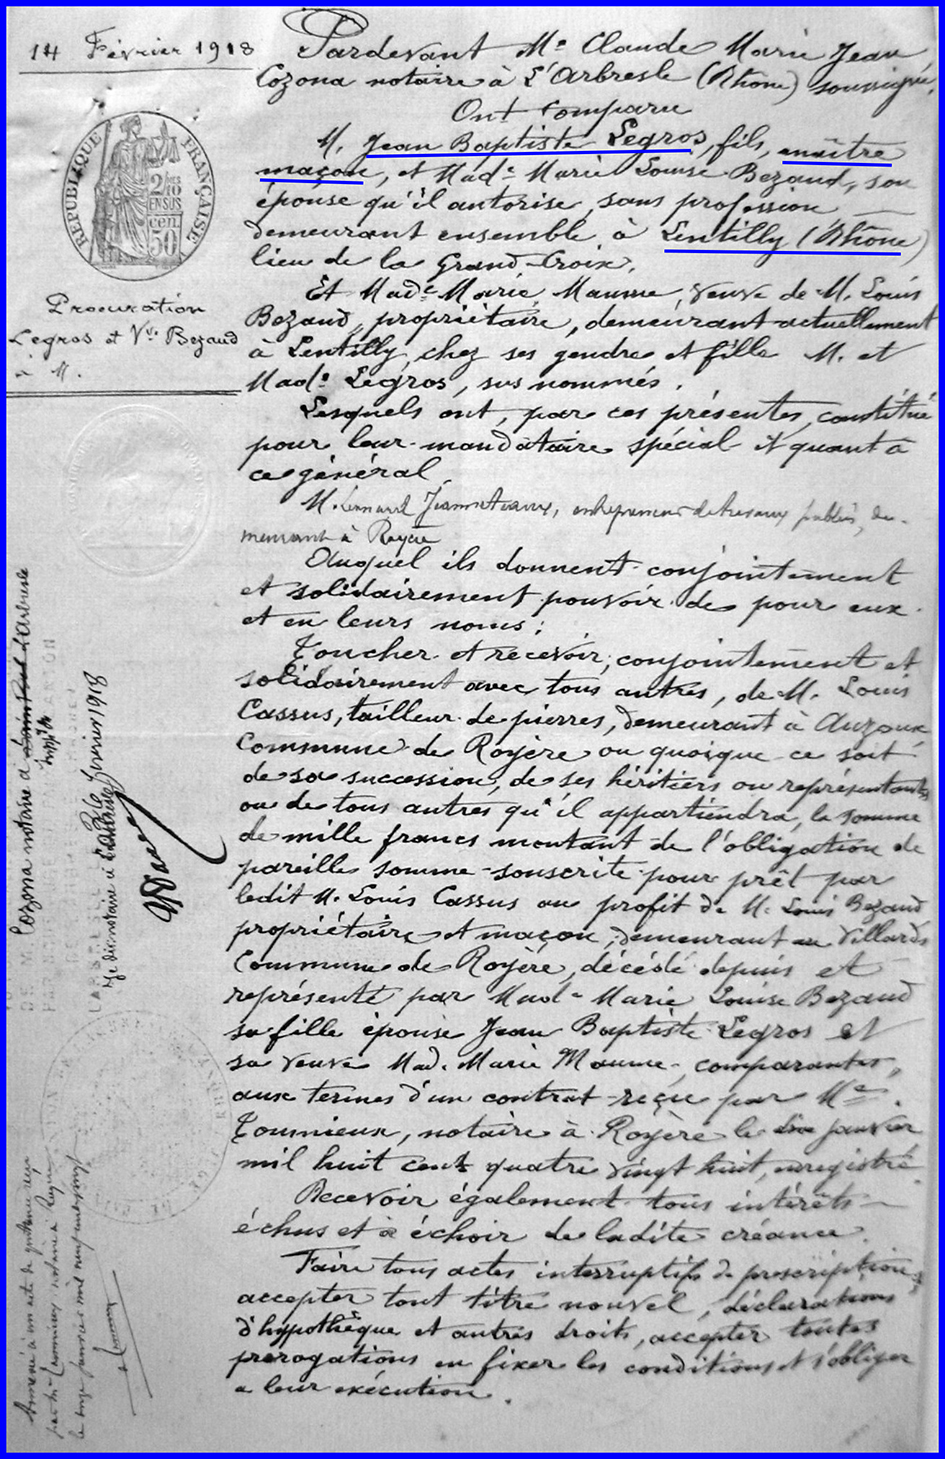 14 Février 1918
RÉPUBLIQUE FRANÇAISE
2/10
EN SUS
50 cen
Procuration
Legros et Vve Bezaud
à M.
Pardevant Me Claude Marie Jean
Cozona notaire à L'Arbresle (Rhône) soussigné.
Ont Comparu
M. Jean Baptiste Legros, fils, maître
maçon, et Made Marie Louise Bezaud, son
épouse qu'il autorise, sans profession
demeurant ensemble à Lentilly (Rhône)
lieu de la Grand-Croix.
Et Made Marie Maume, veuve de M. Louis
Bezaud, propriétaire, demeurant actuellement
à Lentilly, chez ses gendre et fille M. et
Made Legros, sus nommés.
Lesquels ont, par ces présentes, constitué
pour leur mandataire spécial et quant à
ce général
M. Léonard entrepreneur de travaux publics, de-
meurant à Royère
Auquel ils donnent conjointement
et solidairement pouvoir de pour eux
et en leurs noms:
Toucher et recevoir, conjointement et
solidairement avec tous autres, de M. Louis
Cassus, tailleur de pierres, demeurant à Auzoux
Commune de Royère ou quoique ce soit
de sa succession, de ses héritiers ou représentants
ou de tous autres qu'il appartiendra, la somme
de mille francs montant de l'obligation de
pareille somme souscrite pour prêt par
ledit M. Louis Cassus au profit de M. Louis Bezaud
propriétaire et maçon, demeurant au Villard
Commune de Royère, décédé depuis et
représenté par Made Marie Louise Bezaud
sa fille épouse Jean Baptiste Legros et
sa veuve Mad. Marie Maume, comparantes,
aux termes d'un contrat reçu par Me
Toumieux, notaire à Royère le janvier
mil huit cent quatre vingt huit, enregistré
Recevoir également tous intérêts
échus et à échoir de ladite créance.
Faire tous actes interruptifs de prescription,
accepter tout titre nouvel, déclarations
d'hypothèque et autres droits, accepter toutes
prorogations en fixer les conditions et s'obliger
a leur exécution.
Cozona notaire à L'Arbresle
notaire à février 1918
Annexé à un acte de quittance reçu
par Me Toumieux notaire à Royère
le onze janvier mil neuf cent